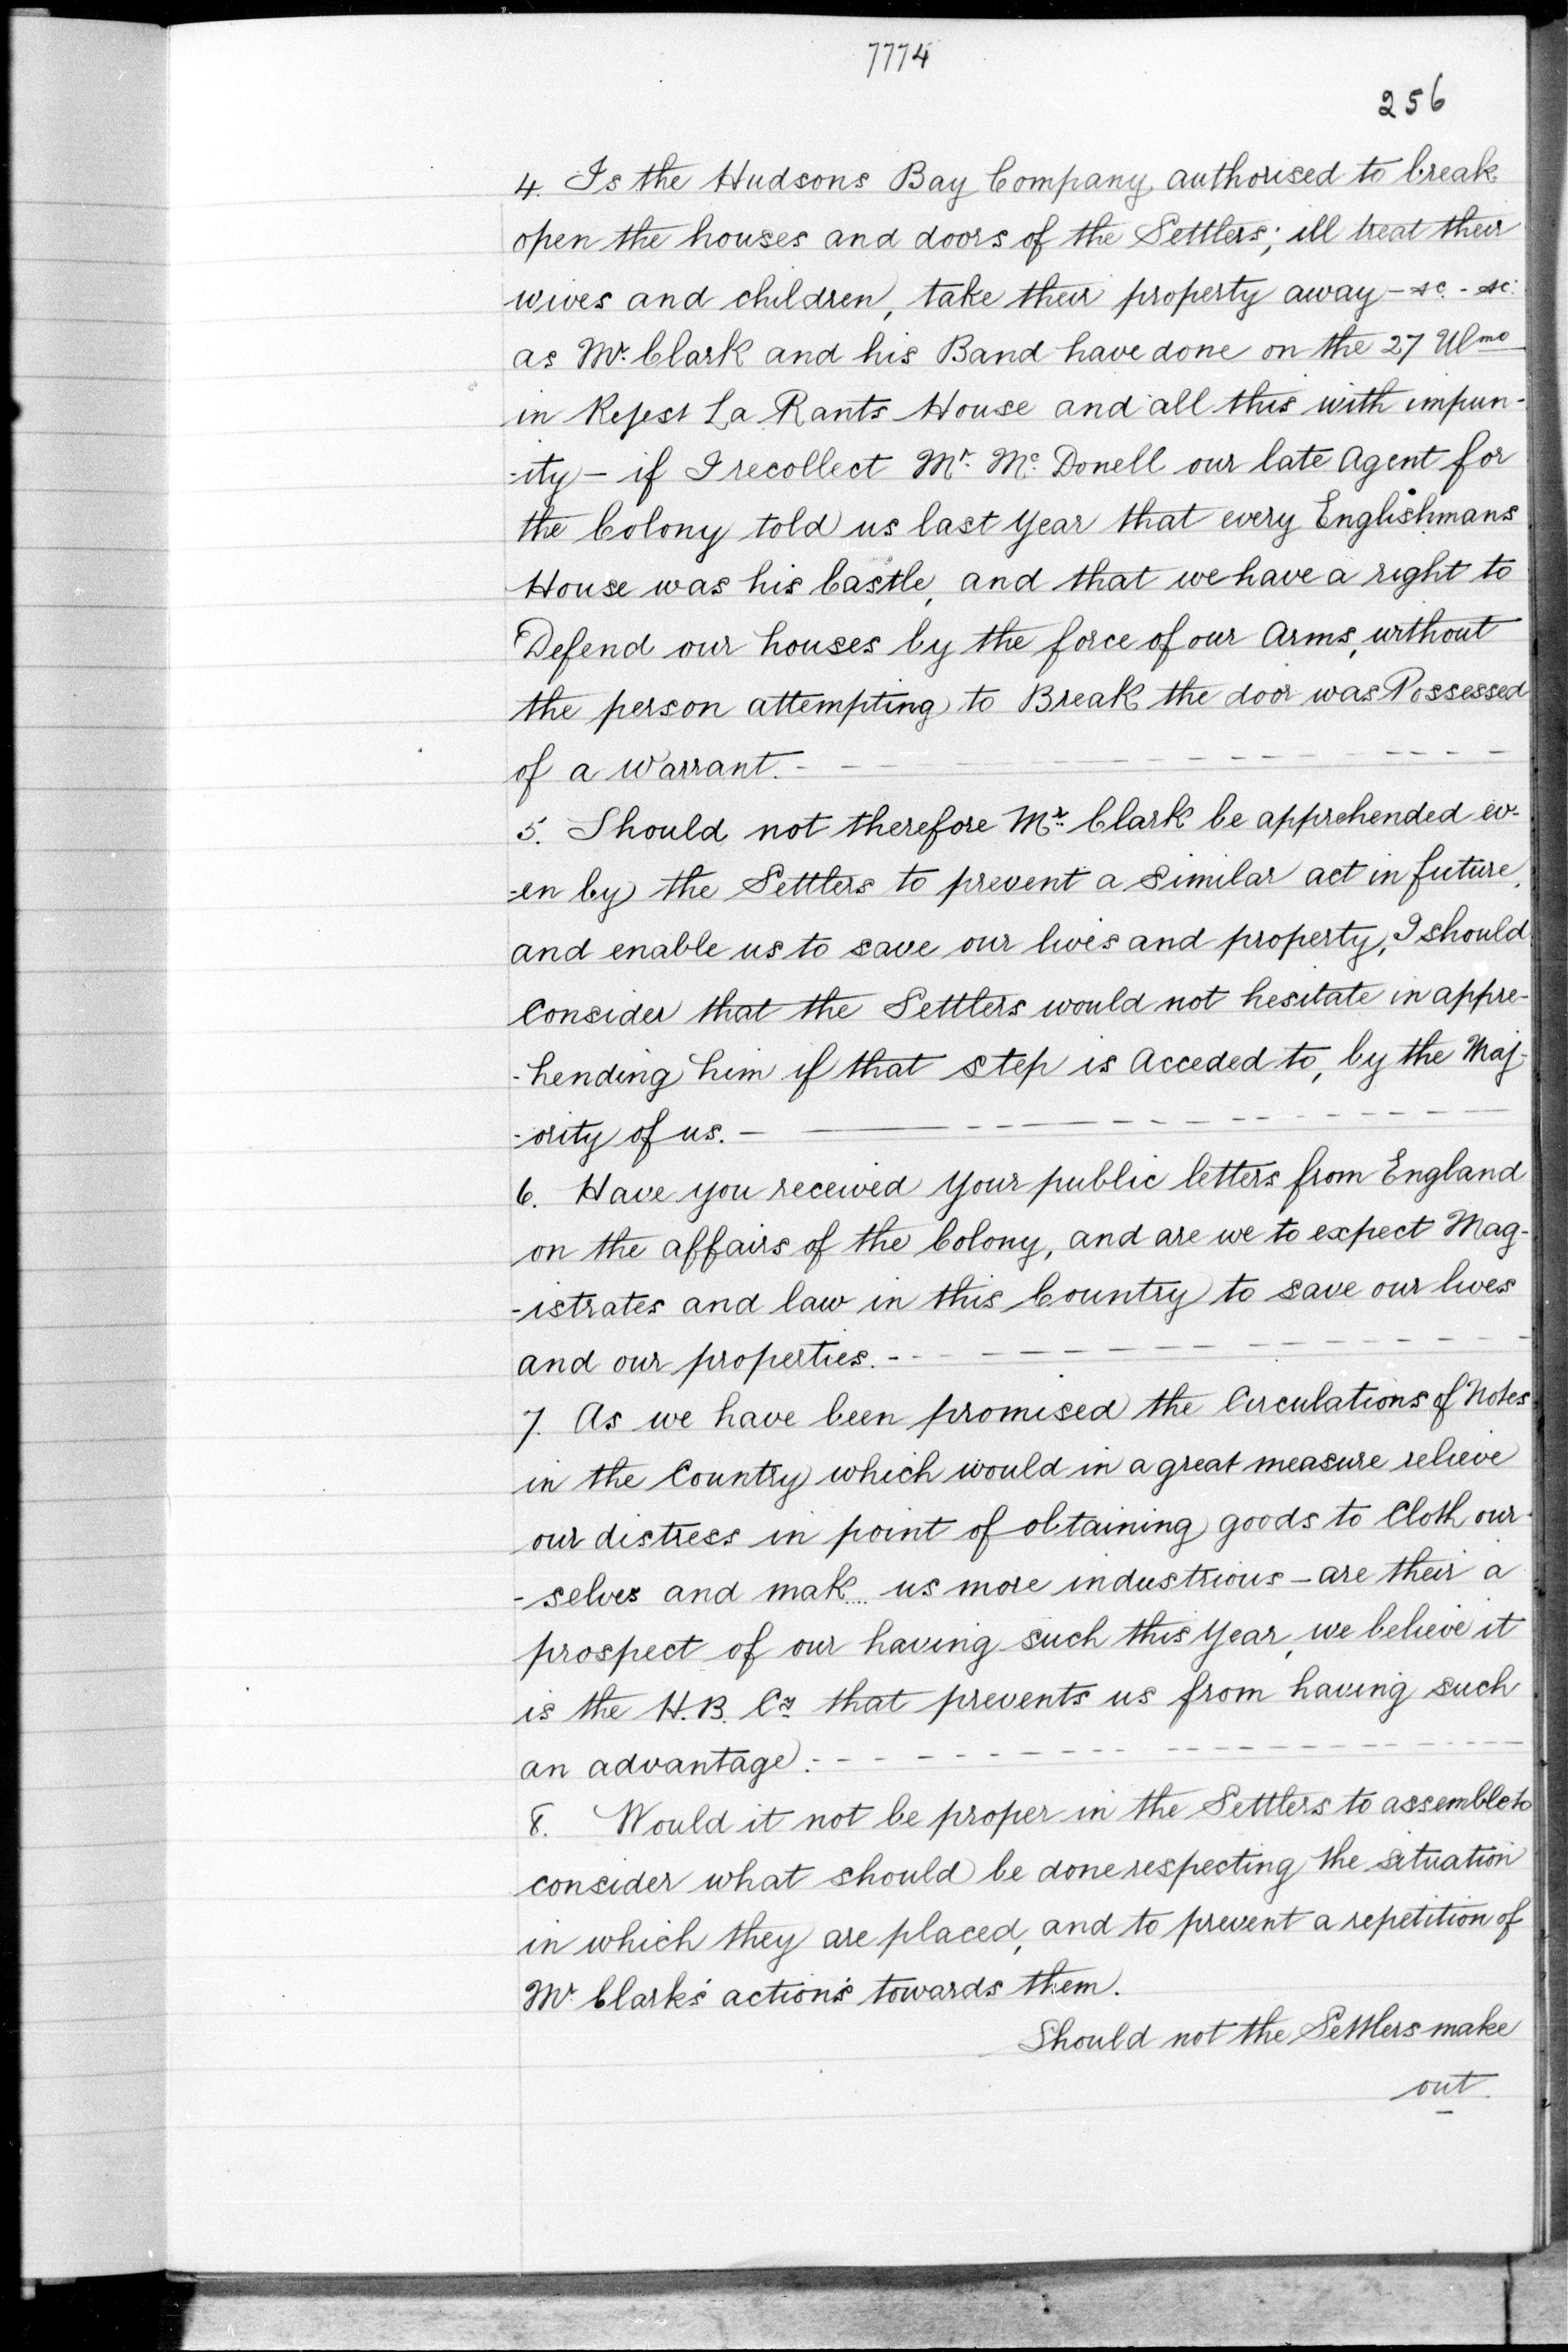 7774
256
4. Is the Hudsons Bay Company authorised to break
open the houses and doors of the Settlers; ill treat their
wives and children, take their property away - &c. - &c.
as Mr. Clark and his Band have done on the 27 Ulmo
in La Rants House and all this with impun-
-ity - if I recollect Mr. Mc. Donell our late Agent for
the Colony told us last Year that every Englishmans
House was his Castle, and that we have a right to
Defend our houses by the force of our Arms, without
the person attempting to Break the door was Possessed
of a Warrant. -
5. Should not therefore Mr. Clark be apprehended ev-
-en by the Settlers to prevent a similar act in future,
and enable us to save our lives and property, I should
Consider that the Settlers would not hesitate in appre-
-hending him if that step is Acceded to, by the Maj-
-ority of us. -
6. Have you received Your public letters from England
on the affairs of the Colony, and are we to expect Mag-
-istrates and law in this Country to save our lives
and our properties. -
7. As we have been promised the Circulations of Notes
in the Country which would in a great measure relieve
our distress in point of obtaining goods to Cloth our-
-selves and mak.... us more industrious - are their a
prospect of our having such this Year, we believe it
is the H.B. Co. that prevents us from having such
an advantage. -
8. Would it not be proper in the Settlers to assemble to
consider what should be done respecting the situation
in which they are placed, and to prevent a repetition of
Mr Clark's action's towards them.
Should not the Settlers make
out.